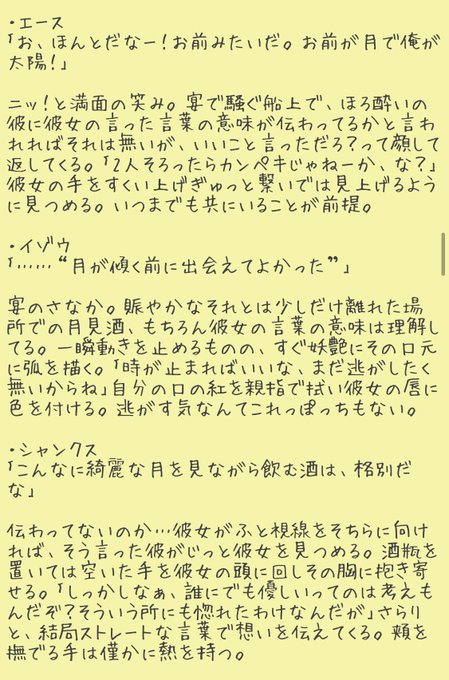 ・エース
「お、ほんとだなー！お前みたいだ。お前が月で俺が
太陽！」
ニッ！と満面の笑み。宴で騒ぐ船上で、ほろ酔いの
彼に彼女の言った言葉の意味が伝わってるかと言わ
れればそれは無いが、いいこと言っただろ？って顔して
返してくる。「2人そろったらカンペキじゃねーか、な？」
彼女の手をすくい上げぎゅっと繋いでは見上げるよう
に見つめる。いつまでも共にいることが前提。
・イゾウ
「……“月が傾く前に出会えてよかった”」
宴のさなか。賑やかなそれとは少しだけ離れた場
所での月見酒、もちろん彼女の言葉の意味は理解し
てる。一瞬動きを止めるものの、すぐ妖艶にその口元
に弧を描く。「時が止まればいいな、まだ逃がしたく
無いからね」自分の口の紅を親指で拭い彼女の唇に
色を付ける。逃がす気なんてこれっぽっちもない。
・シャンクス
「こんなに綺麗な月を見ながら飲む酒は、格別だ
な」
伝わってないのか…彼女がふと視線をそちらに向け
れば、そう言った彼がじっと彼女を見つめる。酒瓶を
置いては空いた手を彼女の頭に回しその胸に抱き寄
せる。「しっかしなぁ、誰にでも優しいってのは考えも
んだぞ？そういう所にも惚れたわけなんだが」さらり
と、結局ストレートな言葉で想いを伝えてくる。頬を
撫でる手は僅かに熱を持つ。